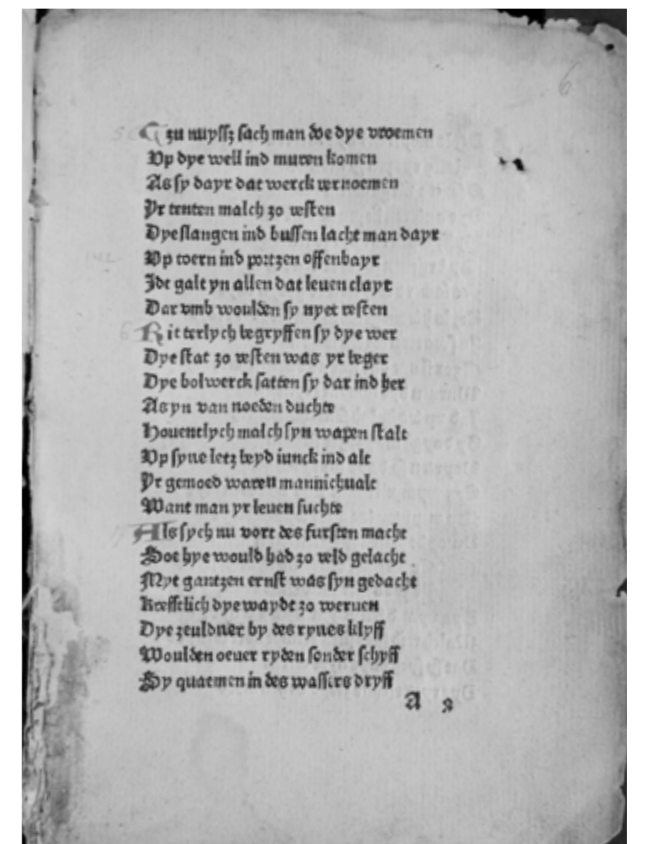 zu nuyssz sach man doe dye vroemen
Vp dye well ind muren komen
As sy dayr dat werck vernoemen
Yr tenten malch zo vesten
Dye slangen ind bussen lacht man dayr
Vp toern ind portzen offenbayr
Jde galt yn allen dat leuen clayr
Dar vmb woulden sy nyet resten
Ritterlych begryffen sy dye wer
Dye stat zo vesten was yr beger
Dye bolwerck satten sy dar ind her
As yn van noeden duchte
Houentlych malch syn wapen stalt
Vp syne letz beyd iunck ind alt
Yr gemoed waren mannichualt
Want man yr leuen suchte
Als sych nu vort des fursten macht
Soe hye would had zo veld gelacht
Myt gantzen ernst was syn gedacht
Kreffelich dye waydt zo weruen
Dye zeuldner by des rynes klyff
Woulden oeuer ryden sonder schyff
Sy quaemen in des wassers dryff
a 3
6